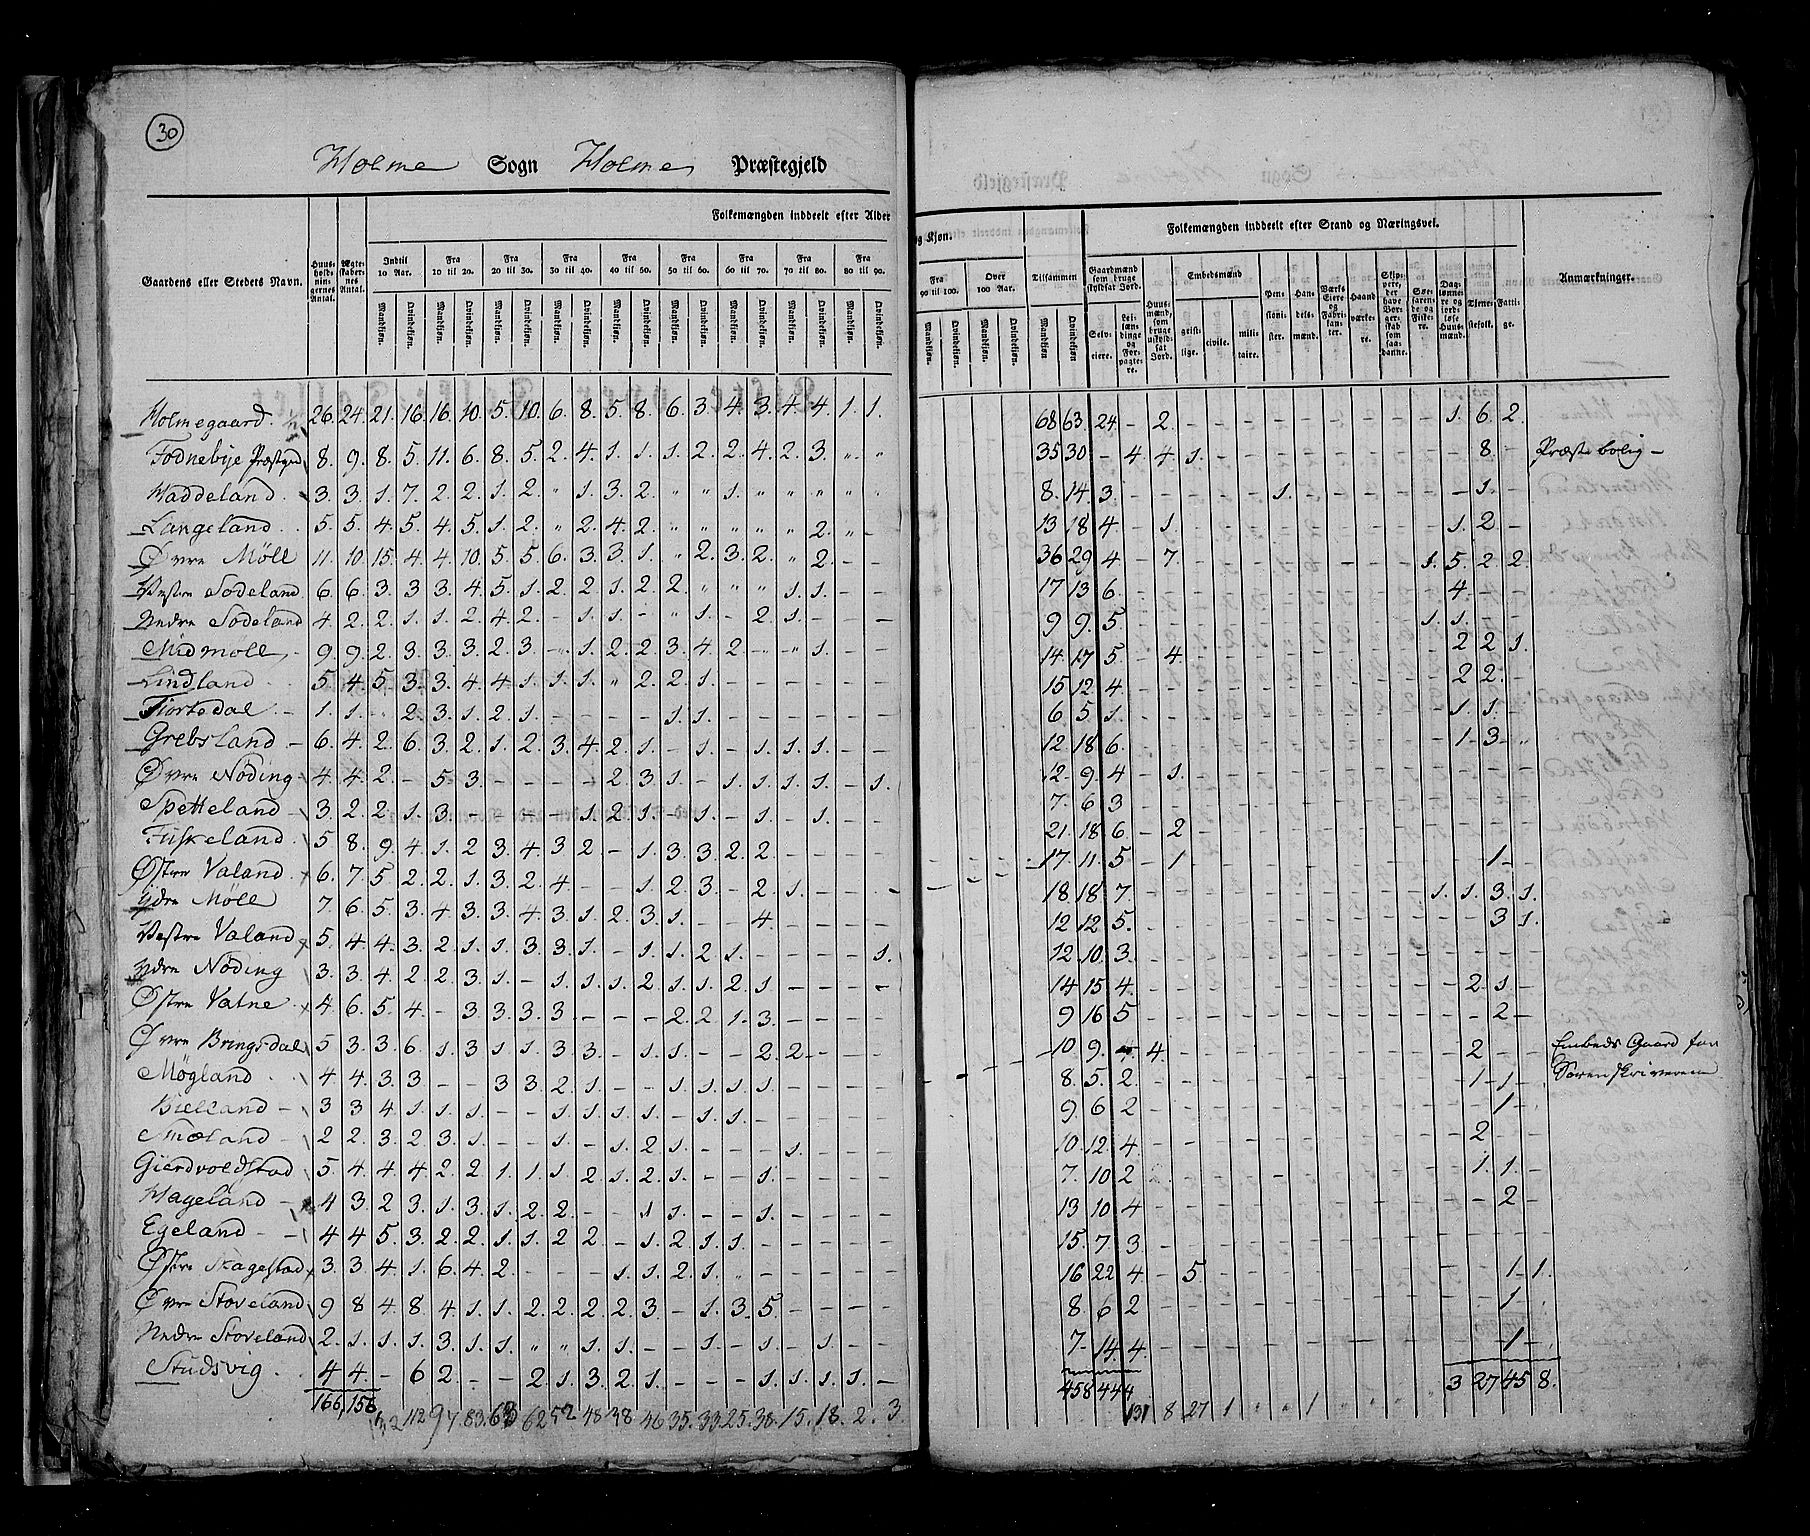 30
Holme Sogn Holme Præstegjeld
Folkemængden inddeelt efter Alder
og Kjøn.
Folkemængden inddeelt efter Stand og Næringsvei.
Gaardens eller Stedets Navn.
Huusholdningernes Antal.
Ægteskabernes Antal.
Indtil 10 Aar.
Fra 10 til 20.
Fra 20 til 30.
Fra 30 til 40.
Fra 40 til 50.
Fra 50 til 60.
Fra 60 til 70.
Fra 70 til 80.
Fra 80 til 90.
Fra 90 til 100.
Over 100 Aar.
Tilsammen
Mandkjøn. Qvindekjøn.
Gaardmænd som bruge skyldsat Jord.
Selveiere.
Leilændinge og Forpagtere.
Huusmænd, som bruge uskyldsat Jord.
Embedsmænd
geistlige. civile. militaire.
Pensionister.
Handelsmænd.
Værks Eiere og Fabrikanter.
Haandværkere.
Skippere, der have Borgerskab som saadanne.
Søefarende og Fiskere.
Daglønnere og jordløse Huusmænd.
Tjenestefolk.
Fattige.
Anmærkninger.
Holmegaard. 26. 24. 21. 16. 16. 10. 5. 10. 6. 8. 5. 8. 6. 3. 4. 3. 4. 4. 1. 1. 68 63. 24 - 2. 1. 6. 2.
Fodnebye Præstgrd 8. 9. 8. 5. 11. 6. 8. 5. 2. 4. 1. 1. 1. 2. 2. 4. 2. 3. " " 35 30 - 4. 4. 1. 8. - Præstebolig -
Haddeland. 3. 3. 1. 7. 2. 2. 1. 2. " 1. 3. 2. " " 1. " " " " " 8. 14. 3. 1. 1.
Langeland 5. 5. 4. 5. 4. 5. 1. 2. " 2. 4. 2. " " " " " 2. " - 13 18 4 - 1. 1. 2. -
Øvre Möll 11. 10. 15. 4. 4. 10. 5. 5. 6. 3. 3. 1. " 2. 3. 2. " 2. - - 36 29 4 - 7. 1. 5. 2 2.
Vestre Sodeland 6. 6. 3. 3. 3. 4. 5. 1. 2. 2. 1. 2. 2. " " " 1. 1. - - 17 13 6. 4. - -
Nedre Sodeland 4. 2. 2. 1. 1. 2. 4. 2. - 1. 1. - " 1. - 2. 1. - - - 9 9. 5. 1. 1. - -
Midmöll 9. 9. 2. 3. 3. 3. 2. 3. - 1. 2. 2. 3. 4. 2. - " 1. - - 14. 17 5. - 4. 2 2. 1.
Lindland 5. 4. 5. 3. 3. 4. 4. 1. 1. 1. " 2. 2. 1. - - - - - - 15 12 4. 2 2. -
Fiortedal. 1. 1. - 2. 3. 1. 2. 1. - - - - 1. 1. - - - - - - 6. 5 1. 1. 1. -
Grebsland 6. 4. 2. 6. 3. 2. 1. 2. 3. 4. 2. 1. - 1. - 1. 1. 1. - - 12. 18 6. 1. 3. "
Øvre Nöding 4. 4. 2. - 5. 3. - - - - 2. 3. 1. - 1. 1. 1. 1. - 1. 12. 9. 4 - 1.
Spetteland 3. 2. 2. 1. 3. - - - - 1. 2. 1. - 1. - 1. - 1. - - 7. 6 3
Fuskeland. 5 8. 9. 4. 1. 2 3. 4. 3 2 - 1. 3. 3. 2. 2. - - - - 21. 18 6 - 2
Østre Valand. 6. 7. 5 2. 2. 1. 3. 2 4 - - 1. 2 3. - 2. 1. - - - 17. 11. 5 - 1 1 -
Ydre Möll 7. 6. 5. 3. 4 3. 3. 4. 3. 1. 2. 3. 1. - - 4. - - - - 18. 18 7. 1. 1. 3 1.
Vestre Valand 5. 4 4. 3. 2. 1. 1. 3 3. 1. - 1. 1. 2. 1. - - - - 1. 12 12 5. 3 1.
Ydre Nöding 3. 3. 4. 2 2. 3. 1. - 1. 1. 1. 2 1. 1. 2. 1 - - - - 12. 10. 3.
Østre Vatne. 4 6. 5. 4. - 3. 3. 3. 3. - - - 2. 2. 1. 3. - - - - 14 15 4. 2. 1 -
Øvre Bringsdal 5 3 3. 6. 1. 3 1. 1. 3 3. - 1. 1. - - 2. 2. - - - 9 16 5 2 -
Mögland. 4 4. 3. 3 - - 3 3. 2. 1. - - 1. 1. 1. 1. - - - - 10 9. - 4. 2 - - Embeds Gaard for
Bielland 3 3 4 1. 1. 1. - - 1. 1. 1. 1. - 1. 1. - - - - - 8. 5. 2 1 1. Sorenskriveren
Smæland 2 2. 3. 2. 3. 1. - - 1. - 1. 2 1. - - - 1. - - - 9. 6 2 1 -
Gierdvoldstad 5. 4. 4. 4 2. 2 1. 1. 1 2 1. 2. 1. - - 1. - - - - 10. 12. 4 2 - -
Hageland 4 3 2 3. 1. 3. 1. 2 2. - - 1 1. - - 1. - - - - 7. 10 2 1. 1. -
Egeland 4 4 5. 3. 2. 2. 1. 1. 2 2. - 1. 2. 1. 1. - - - - - 13 10 4 2 -
Østre Skagestad 3. 3. 4. 1. 6. 4. 2. - - - 1. 1. 2. 1. - - - - - - 15. 7 3
Øvre Stoveland 9 8 4. 8. 4. 1. 1. 2. 2. 2. 2. 3 - 1. 3. 5. - - - - 16 22 4 - 5 1 1.
Nedre Stoveland 2. 1. 1. 1. 3. 1. 1. " " 1. 1. - - 1. - 1. - 1. - - 8. 6 2 1 -
Studsvig. 4 4. - 6 2. - - 2 1. 3. 2 1. - - - 1. 1. 1. 1. - 7. 14. 4. 1 -
166, 156 132 112 97. 83. 63 62 52. 48. 38 46 35. 33. 25. 38. 15. 18. 2. 3. 458 444 131 8 27 1 " " 1 3 27 45 8.